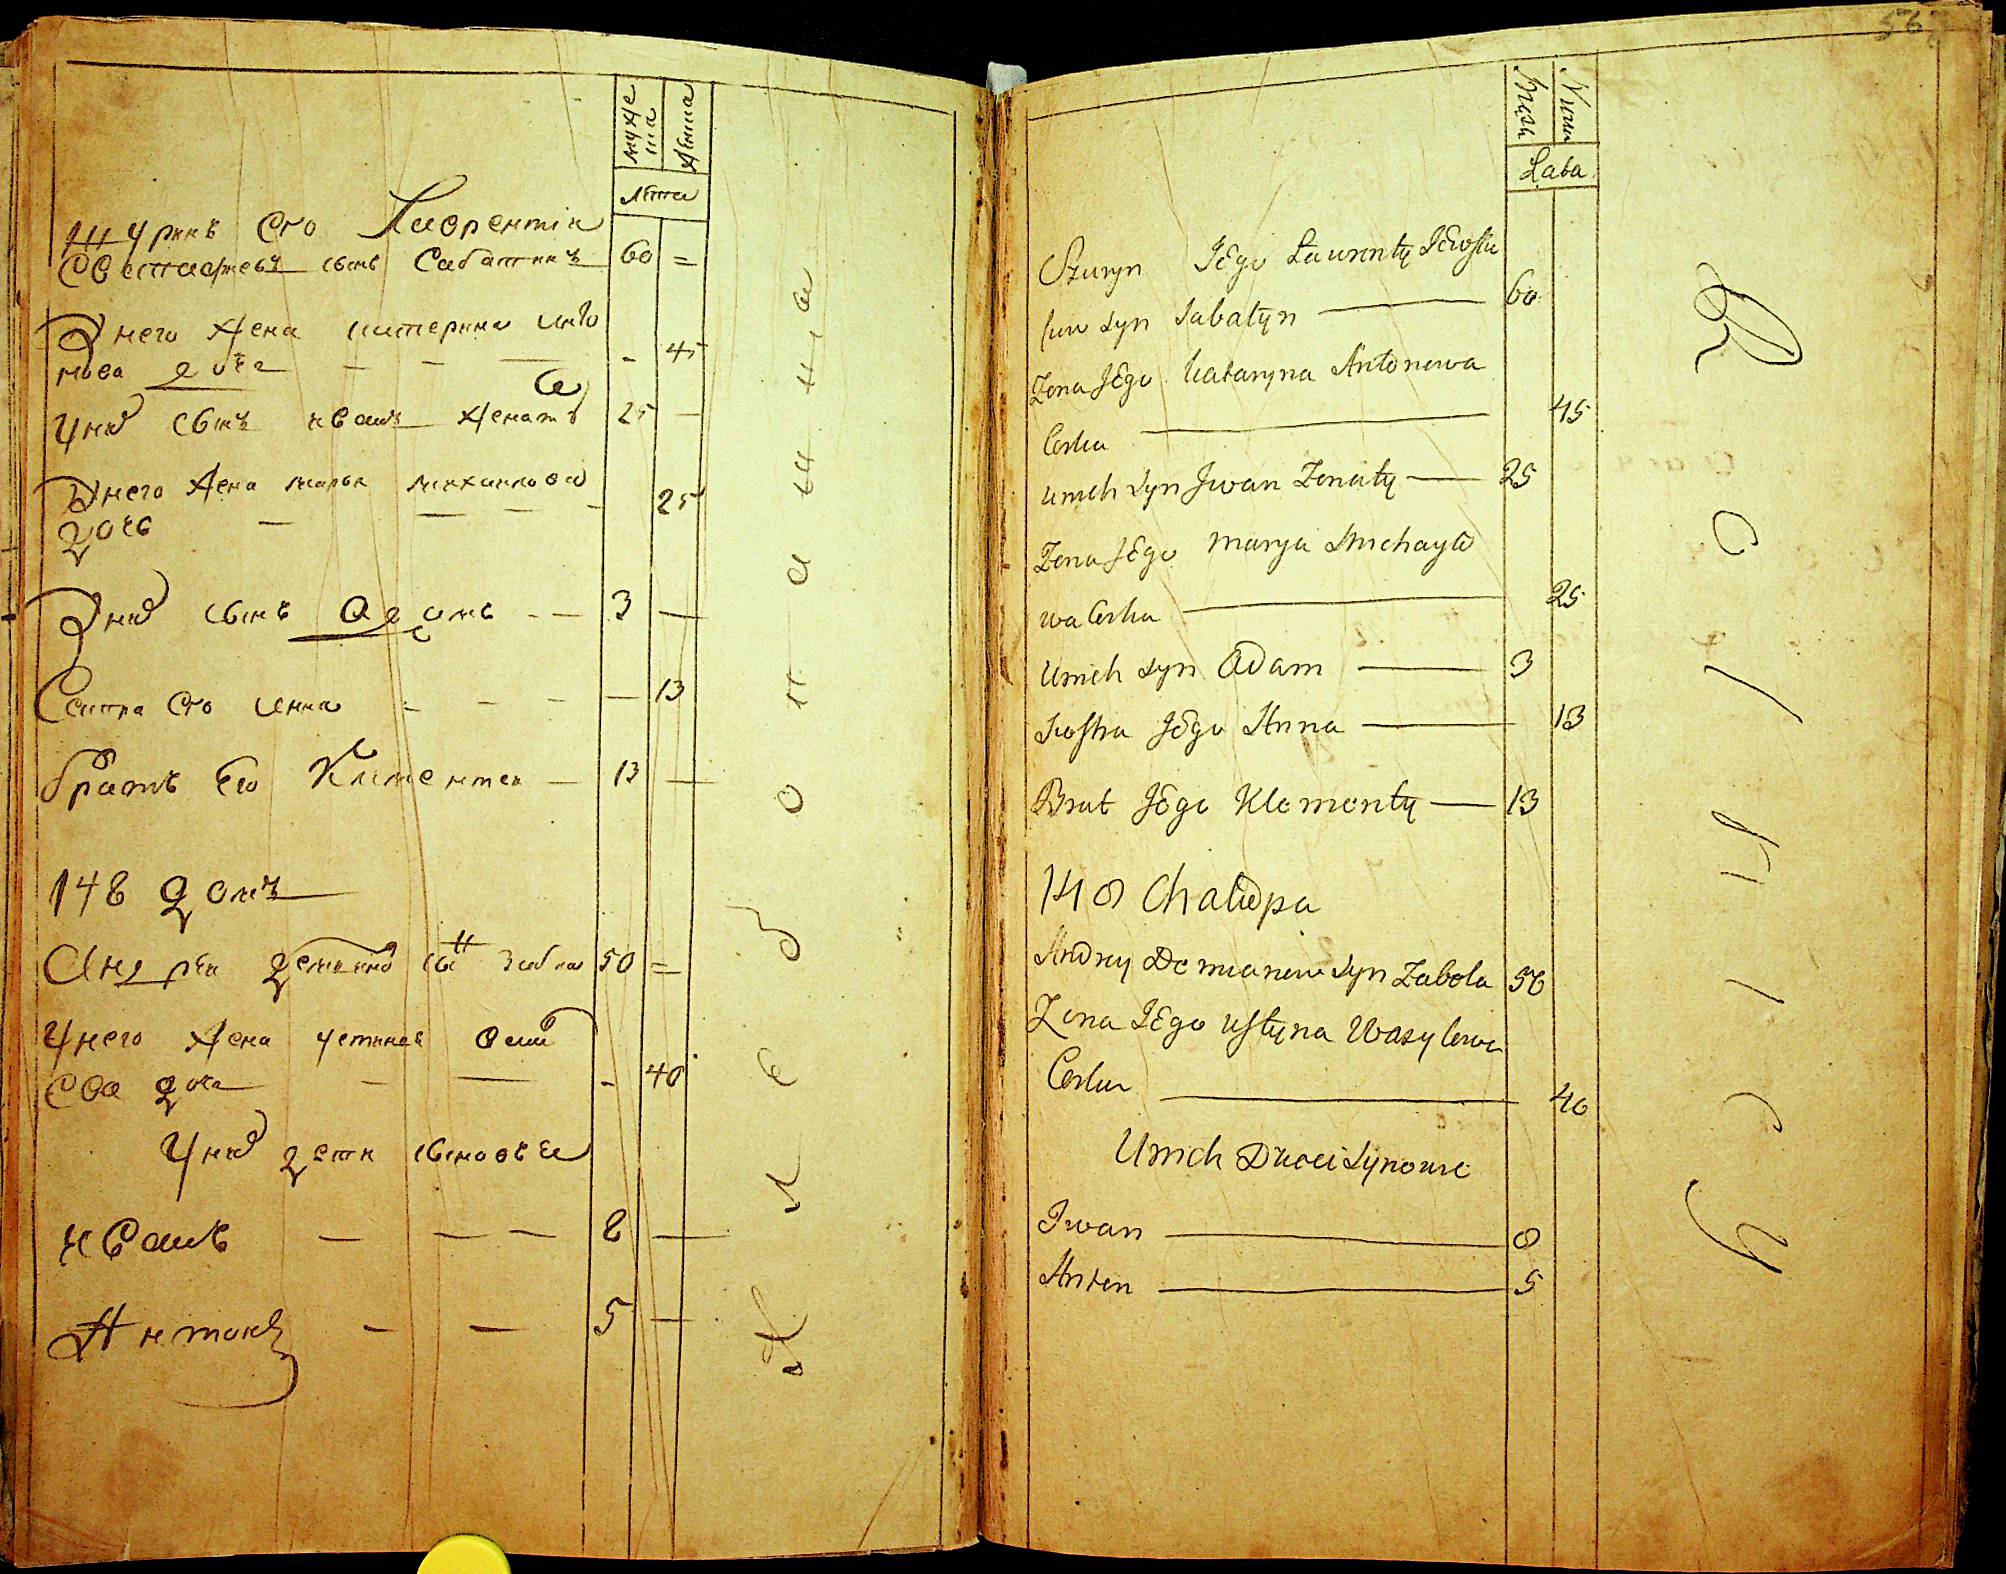 муже
ша
жѣнша
Лѣта
Шуринъ его Лаврентіи
сынъ Сабатинъ 60 =
Унего жена катерина анто
нова доче - - — - 45
Уних сынъ иванъ женатъ 25 —
Унего жена марья михаилова
доче - — - - 25
Уних сынъ Адамъ - — 3 —
Сестра его анна - - - — 13
братъ Его Климентеи — 13 —
148 домъ
Андреи демянов сын Забола 50 =
Унего жена устиная васи
ева доче - — - 40
Уних дети сыновья
иванъ — — — 8 —
Антонъ — — 5 —
56
Męsk
Laba
Szuryn Jego Laurenty
syn Sabatyn — 60
Zona Jego Kataryna Antonowa
Corka — 45
Unich Syn Jwan Zonaty — 25
Zona Jego Marya Michayło
wa Corka — 25
Unich Syn Adam — 3
Siostra Jego Anna — 13
Brat Jego Klementy — 13
148 Chałupa
Andrey Demianow Syn Zabola 50
Zona Jego Ustyna Wasylowa
Corka — 40
Unich Dzieci Synowie
Jwan — 8
Anton — 5